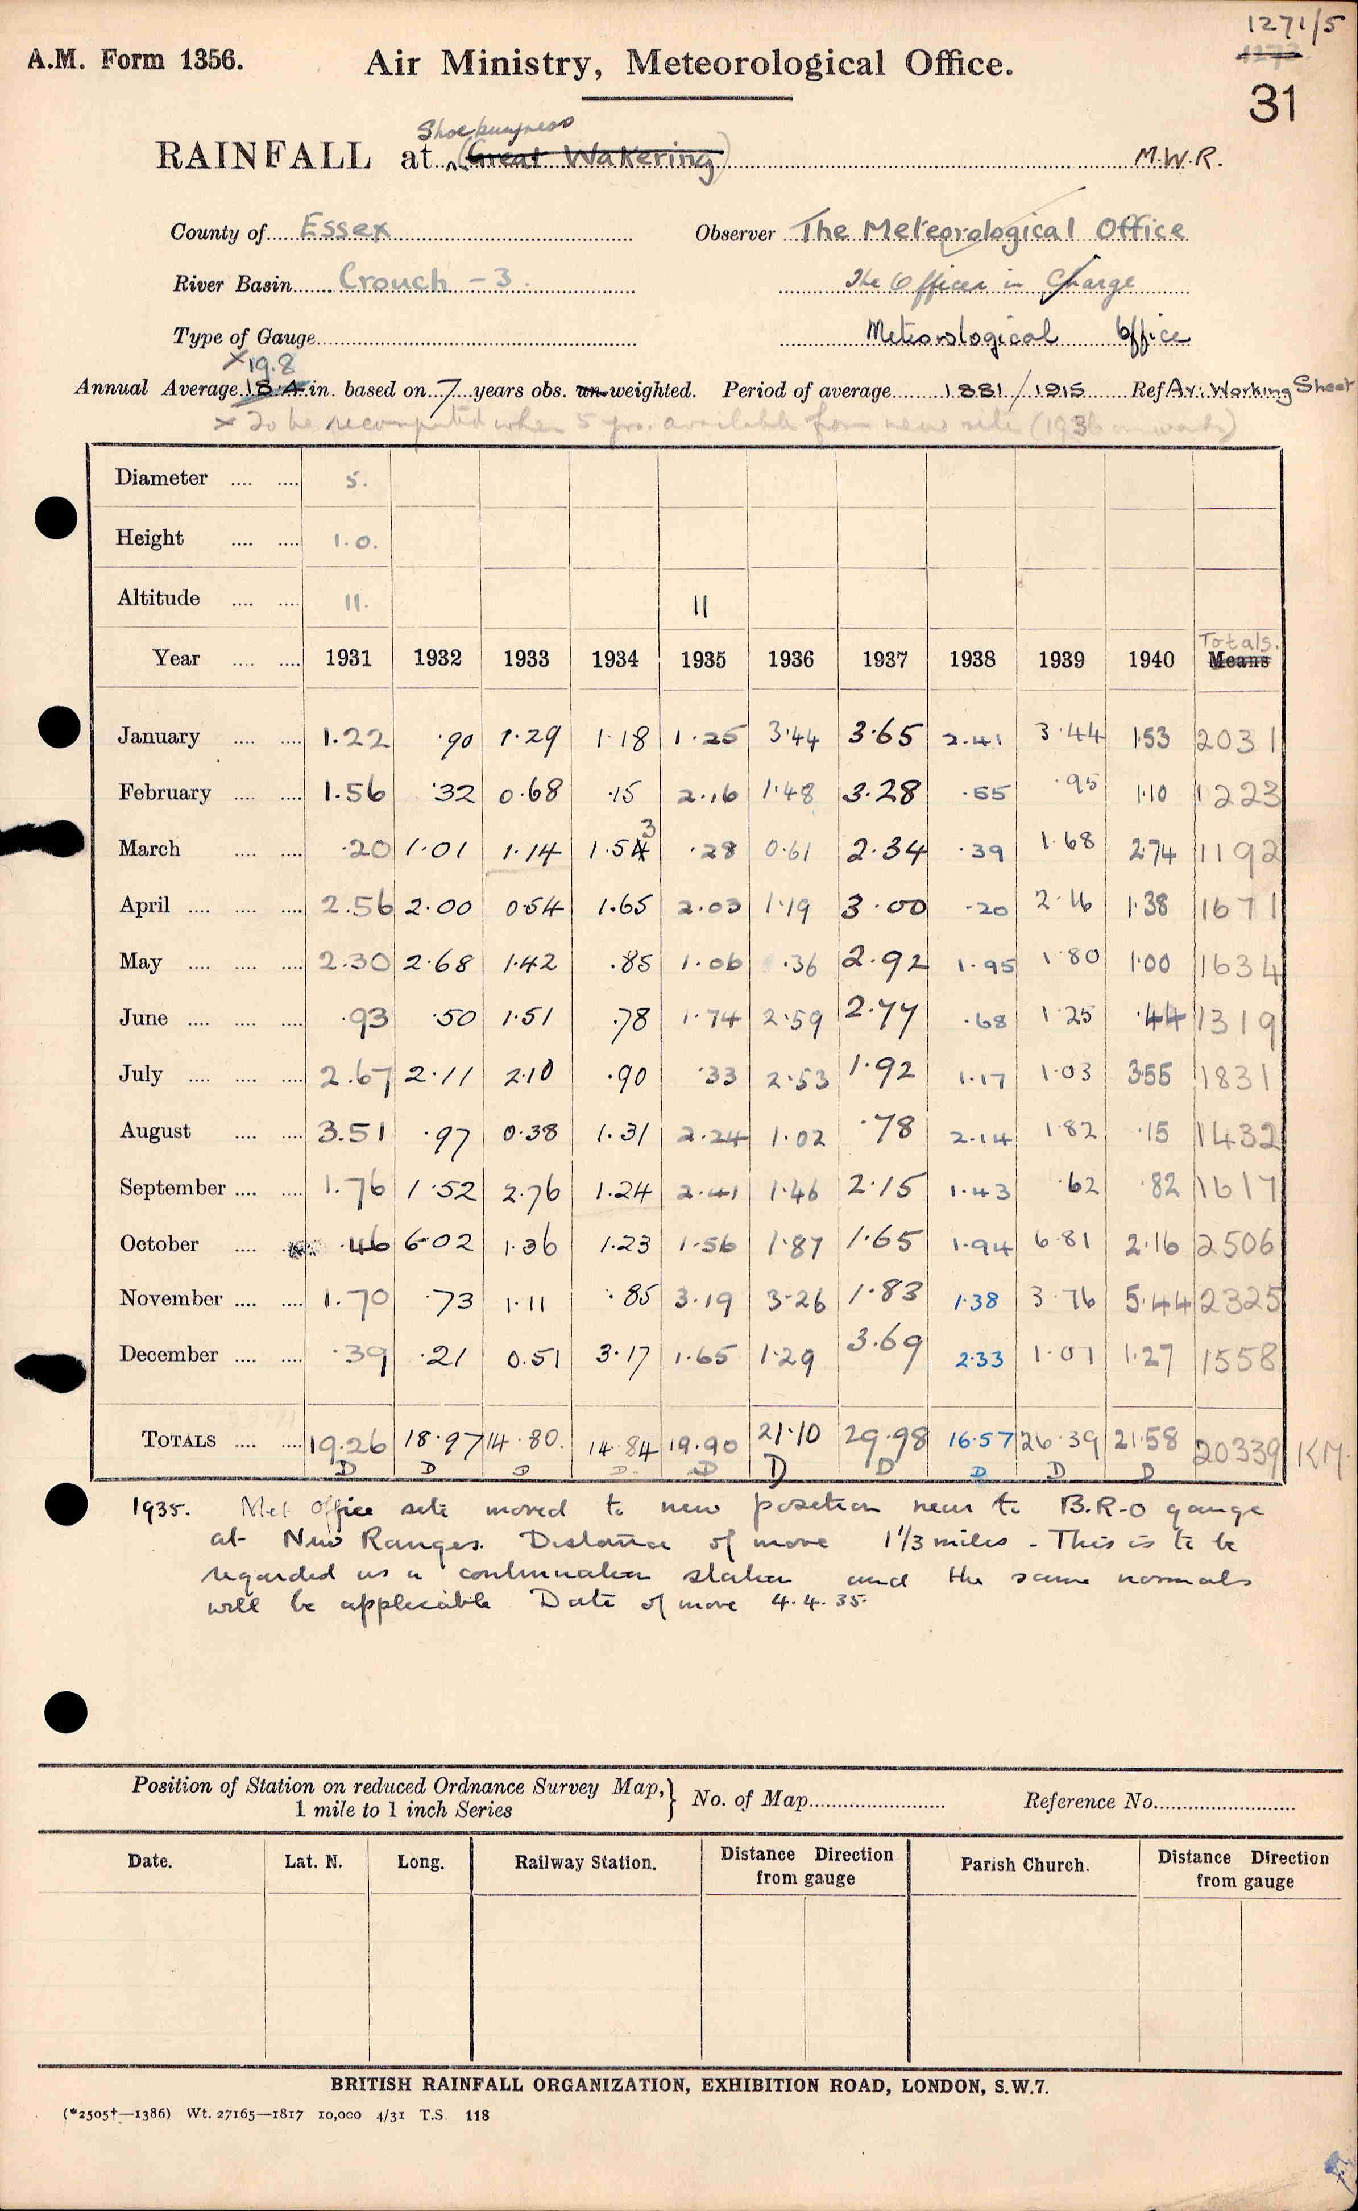 1271/5
A.M. Form 1356. Air Ministry, Meteorological Office.
31
Shoeburyness
RAINFALL at (Great Wakering) M.W.R.
County of Essex Observer The Meteorological Office
River Basin Crouch - 3. The Officer in Charge
Type of Gauge Meteorological Office
x 19.8
Annual Average 18.4 in. based on 7 years obs. un-weighted. Period of average 1881/1915 Ref Av: Working Sheet
x To be recomputed when 5 yrs. available from new site (1936 onwards)
Diameter .... .... 5.
Height .... .... 1.0.
Altitude .... .... 11. 11
Totals.
Year .... .... 1931 1932 1933 1934 1935 1936 1937 1938 1939 1940 Means
January .... .... 1.22 .90 1.29 1.18 1.25 3.44 3.65 2.41 3.44 1.53 2031
February .... .... 1.56 .32 0.68 .15 2.16 1.48 3.28 .55 .95 1.10 1223
3
March .... .... .20 1.01 1.14 1.54 .28 0.61 2.34 .39 1.68 2.74 1192
April .... .... .... 2.56 2.00 0.54 1.65 2.03 1.19 3.00 .20 2.16 1.38 1671
May .... .... .... 2.30 2.68 1.42 .85 1.06 .36 2.92 1.95 1.80 1.00 1634
June .... .... .... .93 .50 1.51 .78 1.74 2.59 2.77 .68 1.25 .44 1319
July .... .... .... 2.67 2.11 2.10 .90 .33 2.53 1.92 1.17 1.03 3.55 1831
August .... .... 3.51 .97 0.38 1.31 2.24 1.02 .78 2.14 1.82 .15 1432
September .... .... 1.76 1.52 2.76 1.24 2.41 1.46 2.15 1.43 .62 .82 1617
October .... .... .46 6.02 1.36 1.23 1.56 1.87 1.65 1.94 6.81 2.16 2506
November .... .... 1.70 .73 1.11 .85 3.19 3.26 1.83 1.38 3.76 5.44 2325
December .... .... .39 .21 0.51 3.17 1.65 1.29 3.69 2.33 1.01 1.27 1558
TOTALS .... .... 19.26 18.97 14.80. 14.84 19.90 21.10 29.98 16.57 26.39 21.58 20339 KM.
D D D D. D D D D D D
1935. Met Office site moved to new position near to B.R-O gauge
at New Ranges. Distance of move 1 1/3 miles - This is to be
regarded as a continuation station and the same normals
will be applicable Date of move 4.4.35.
Position of Station on reduced Ordnance Survey Map, 1 mile to 1 inch Series } No. of Map Reference No.
Date. Lat. N. Long. Railway Station. Distance Direction from gauge Parish Church. Distance Direction from gauge
BRITISH RAINFALL ORGANIZATION, EXHIBITION ROAD, LONDON, S.W.7.
(*2505†—1386) Wt. 27165—1817 10,000 4/31 T.S. 118